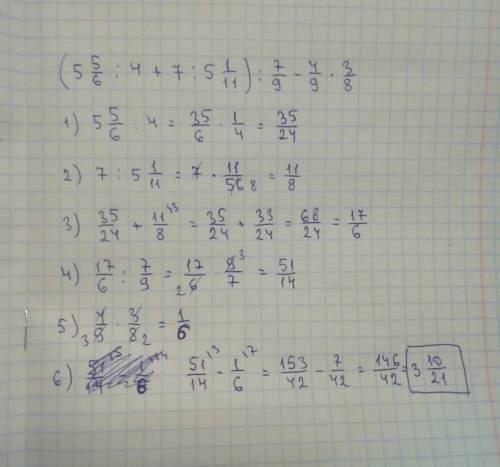 (5 5/6 : 4 + 7 : 5 1/11) : 7/9 - 4/9 · 3/8
1) 5 5/6 : 4 = 35/6 · 1/4 = 35/24
2) 7 : 5 1/11 = 7 · 11/56 8 = 11/8
3) 35/24 + 11/8 \3 = 35/24 + 33/24 = 68/24 = 17/6
4) 17/6 : 7/9 = 17/6 2 · 9/7 3 = 51/14
5) 4/9 3 · 3/8 2 = 1/6
6) 51/14 \3 - 1/6 \7 = 153/42 - 7/42 = 146/42 = 3 10/21